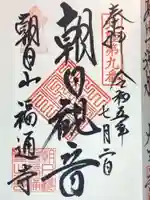 奉拝
第九番
令和五年
七月二日
朝日観音
朝日山福通寺